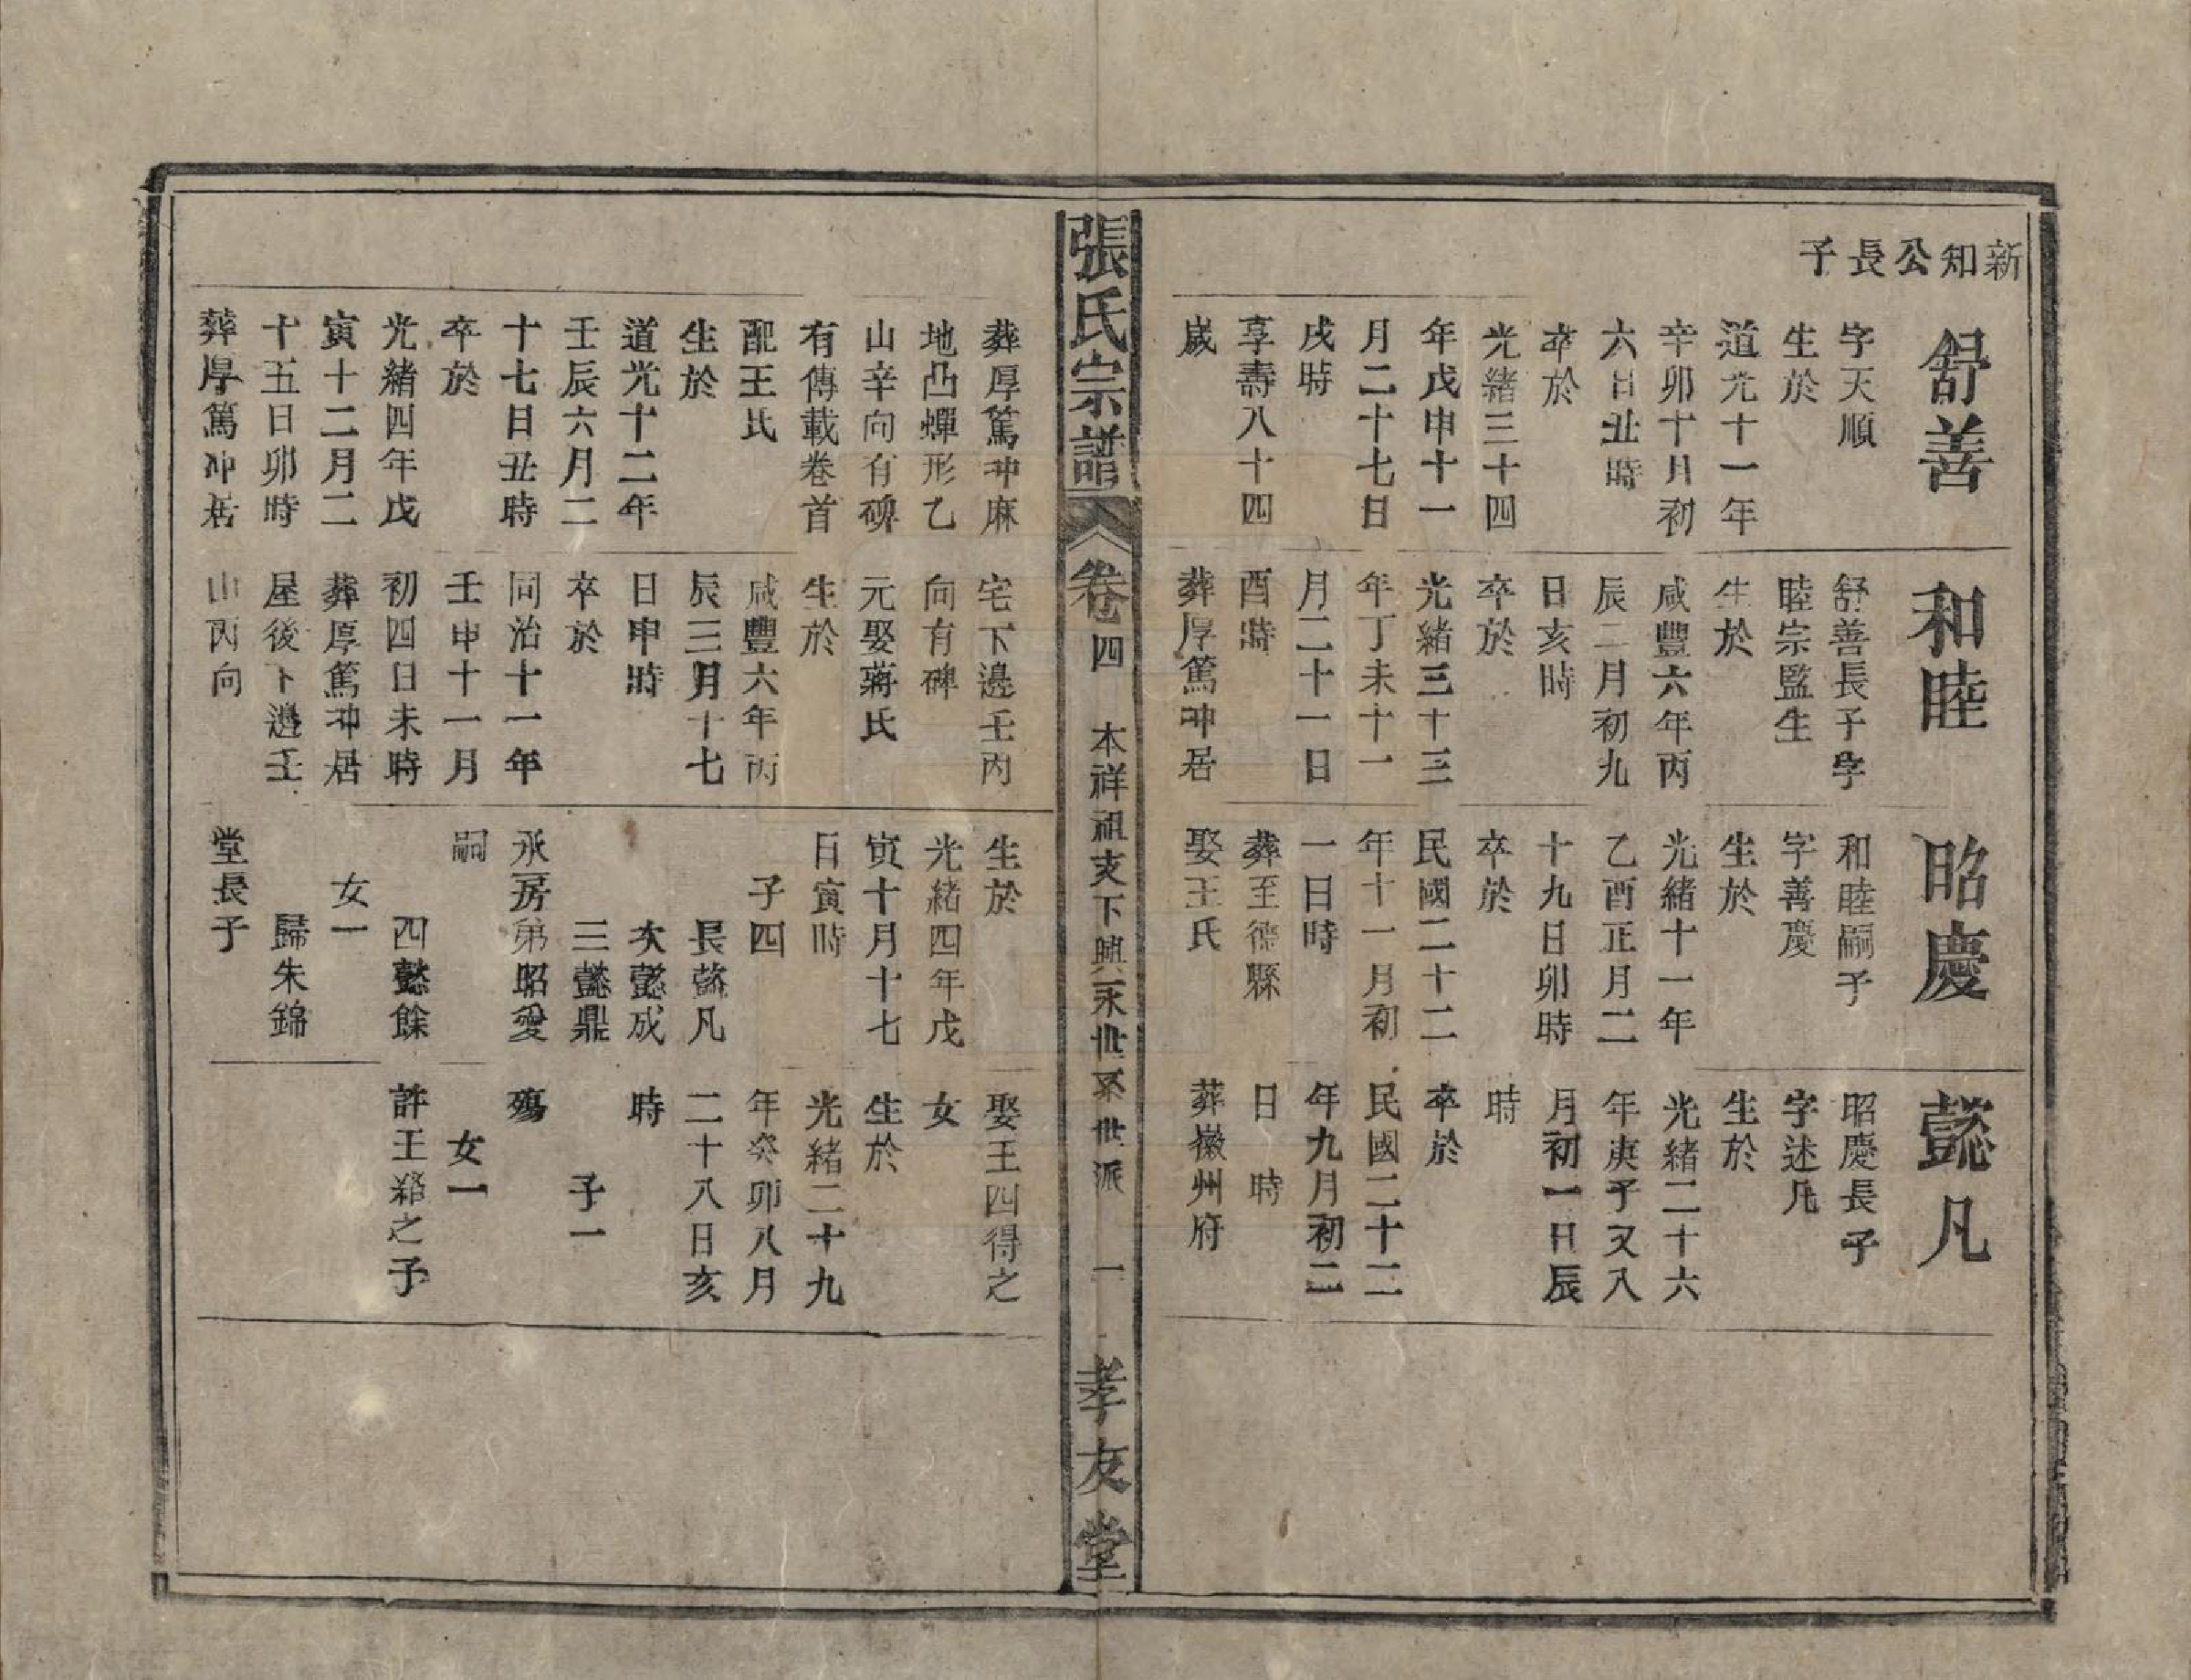 新知公長子
舒善
字天順
生於
道光十一年
辛卯十月初
六日丑時
卒於
光緒三十四
年戊申十一
月二十七日
戌時
享壽八十四
歲
和睦
舒善長子字
睦宗監生
生於
咸豐六年丙
辰二月初九
日亥時
卒於
光緒三十三
年丁未十一
月二十一日
酉時
葬厚篤冲居
昭慶
和睦嗣子
字善慶
生於
光緒十一年
乙酉正月二
十九日卯時
卒於
民國二十二
年十一月初
一日時
葬至德縣
娶王氏
懿凡
昭慶長子
字述凡
生於
光緒二十六
年庚子又八
月初一日辰
時
卒於
民國二十二
年九月初二
日 時
葬徽州府
張氏宗譜
卷四
本祥祖支下興永世系世派
一
孝友堂
葬厚篤冲麻
地凸蟬形乙
山辛向有碑
有傳載卷首
配王氏
生於
道光十二年
壬辰六月二
十七日丑時
卒於
光緒四年戊
寅十二月二
十五日卯時
葬厚篤冲居
宅下邊壬丙
向有碑
元娶蔣氏
生於
咸豐六年丙
辰三月十七
日申時
卒於
同治十一年
壬申十一月
初四日未時
葬厚篤冲居
屋後下邊壬
山丙向
生於
光緒四年戊
寅十月十七
日寅時
子四
長懿凡
次懿成
三懿鼎
承房弟昭愛
嗣
四懿餘
女一
歸朱錦
堂長子
娶王四得之
女
生於
光緒二十九
年癸卯八月
二十八日亥
時
子一
殤
女一
許王之子